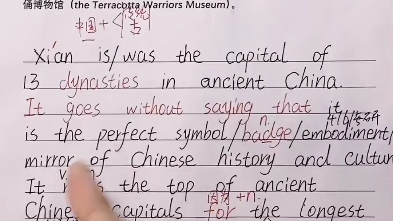 俑博物馆 (the Terracotta Warriors Museum)。
中国 + <传统
Xi'an is/was the capital of
13 dynasties in ancient China.
It goes without saying that it
n.
is the perfect symbol/badge/embodiment/
mirror of Chinese history and cultur
It the top of ancient
+n.
capitals for the longest